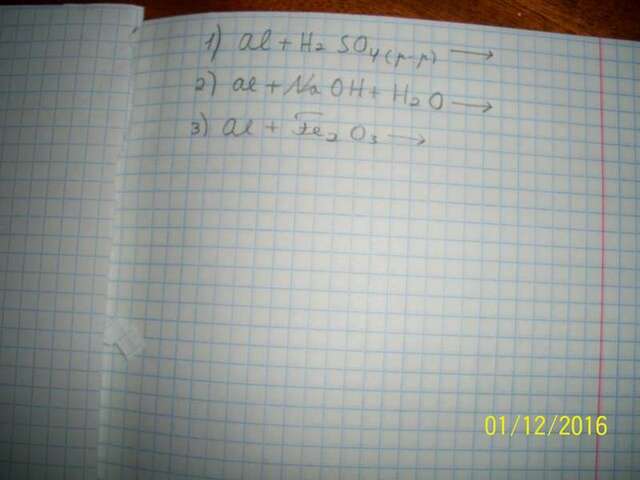 1) Al + H₂ SO₄(р-р) →
2) Al + Na OH + H₂ O →
3) Al + Fe₂ O₃ →
01/12/2016